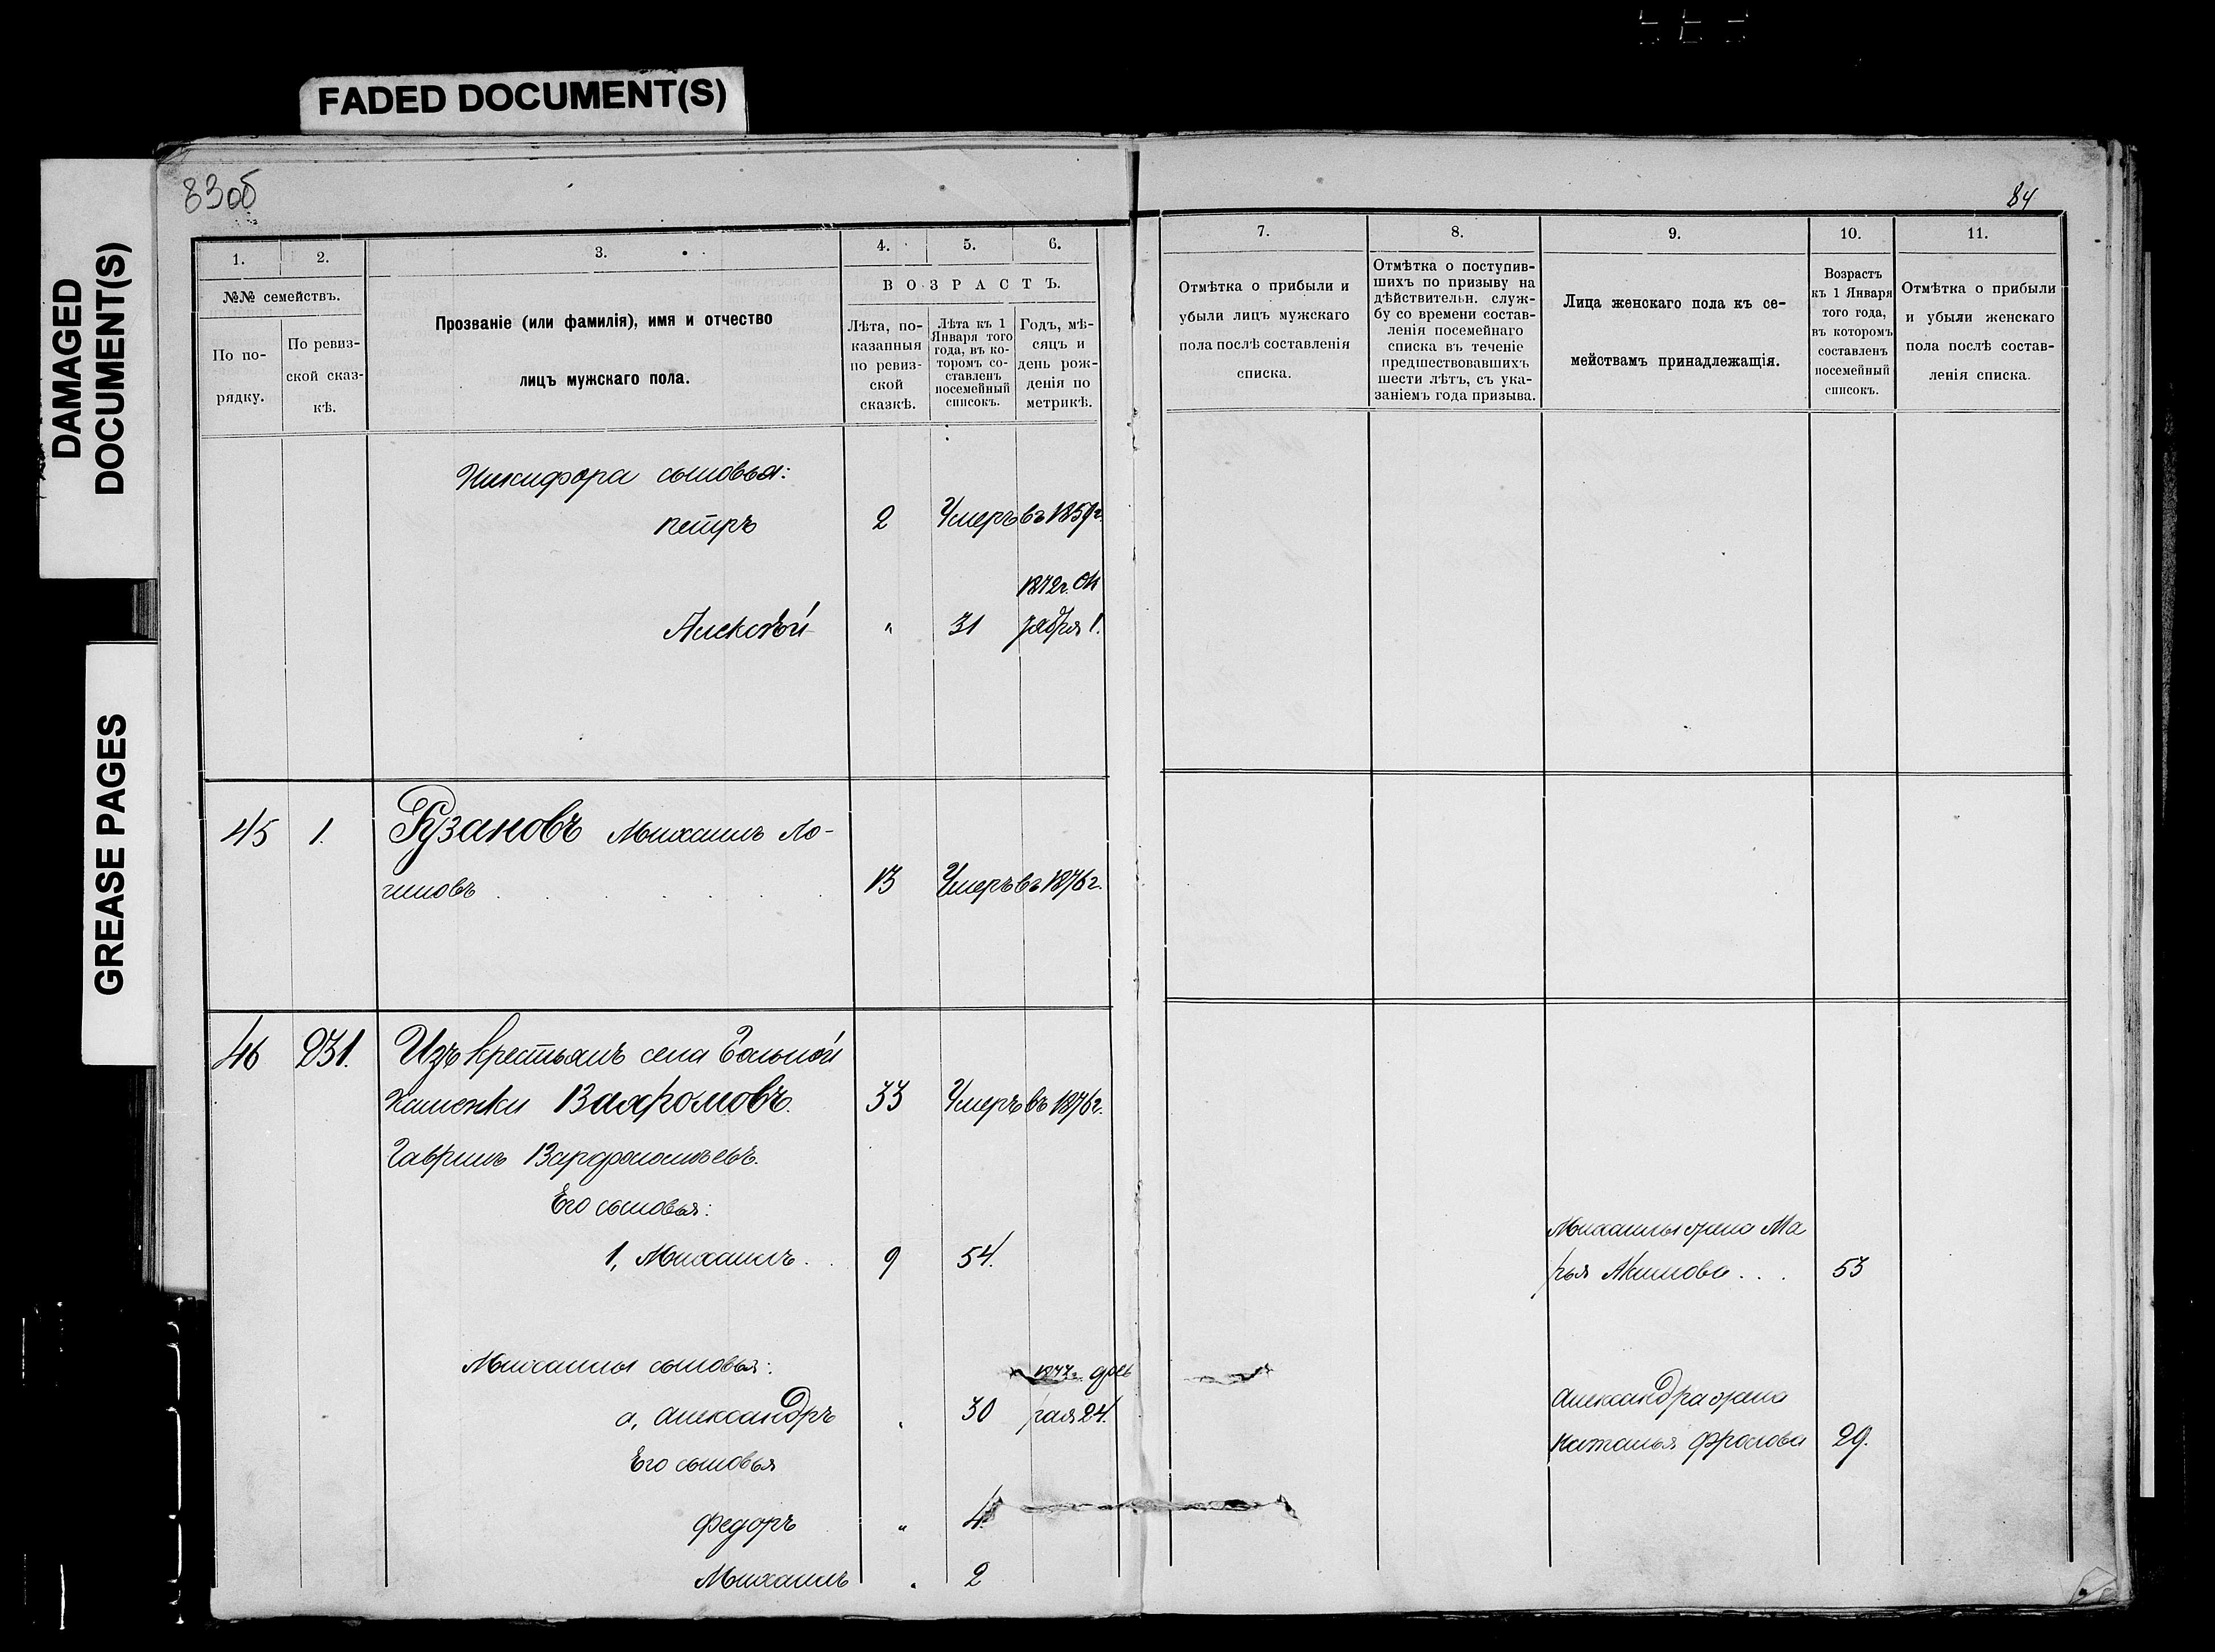 FADED DOCUMENT(S)
DAMAGED
DOCUMENT(S)
GREASE PAGES
83об
84
1.
2.
3.
4.
5.
6.
№№ семействъ.
По по-
рядку.
По ревиз-
ской сказ-
кѣ.
Прозваніе (или фамилія), имя и отчество
лицъ мужскаго пола.
ВОЗРАСТЪ.
Лѣта, по-
казанныя
по ревиз-
ской
сказкѣ.
Лѣта къ 1
Января того
года, въ ко-
торомъ со-
ставленъ
посемейный
списокъ.
Годъ, мѣ-
сяцъ и
день рож-
денія по
метрикѣ.
7.
8.
9.
10.
11.
Отмѣтка о прибыли и
убыли лицъ мужскаго
пола послѣ составленія
списка.
Отмѣтка о поступив-
шихъ по призыву на
дѣйствительн. служ-
бу со времени состав-
ленія посемейнаго
списка въ теченіе
предшествовавшихъ
шести лѣтъ, съ ука-
заніемъ года призыва.
Лица женскаго пола къ се-
мействамъ принадлежащія.
Возрастъ
къ 1 Января
того года,
въ которомъ
составленъ
посемейный
списокъ.
Отмѣтка о прибыли
и убыли женскаго
пола послѣ состав-
ленія списка.
Никифора сыновья:
Петръ 2 Умеръ въ 1859г.
1872г. Ок
Алексѣй " 31 тября 1.
45 1. Рузановъ Михаилъ Ло-
гиновъ 13 Умеръ въ 1876г.
46 231. Изъ крестьянъ села Большой
Каменки Вахромовъ. 33 Умеръ въ 1876г.
Гаврилъ Варфоломѣевъ.
Его сыновья:
Михаилы жена Ма
1, Михаилъ . . 9 54. рья Акимова . . . 53
Михаилы сыновья: 1873г. Фев
Александра жена
а, Александръ 30 раля 24.
Наталья Фролова 29.
Его сыновья
Федоръ " 4.
Михаилъ 2